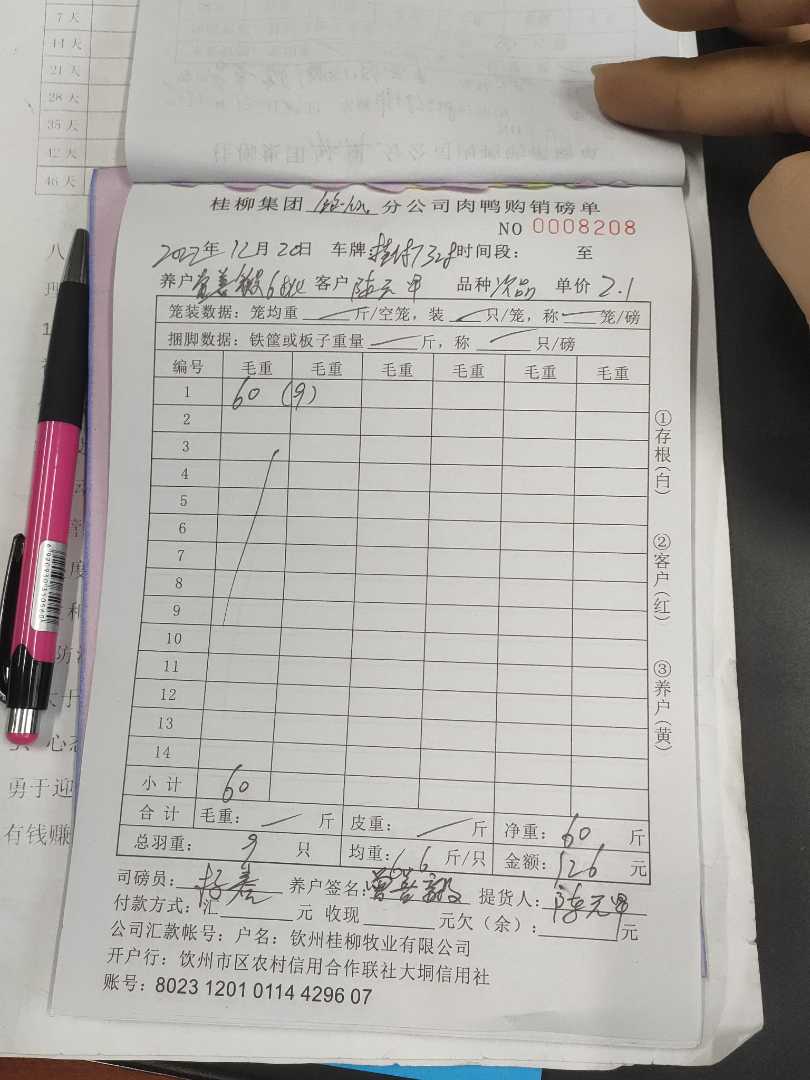 7 天
14 天
21 天
28 天
35 天
42 天
46 天
桂柳集团 分公司肉鸭购销磅单
NO 0008208
2022年 12月 20日 车牌 时间段： 至
养户 曾善毅 68批 客户 陈元甲 品种 次品 单价 2.1
笼装数据：笼均重 斤/空笼，装 只/笼，称 笼/磅
捆脚数据：铁筐或板子重量 斤，称 只/磅
编号 毛重 毛重 毛重 毛重 毛重 毛重
1 60 (9)
2
3
4
5
6
7
8
9
10
11
12
13
14
小计 60
合计 毛重： 斤 皮重： 斤 净重：60 斤
总羽重： 9 只 均重：6.6 斤/只 金额：126 元
司磅员： 养户签名：曾善毅 提货人：陈元甲
付款方式：汇 元 收现 元欠（余）： 元
公司汇款帐号：户名：钦州桂柳牧业有限公司
开户行：钦州市区农村信用合作联社大垌信用社
账号：8023 1201 0114 4296 07
①存根(白)
②客户(红)
③养户(黄)
勇于迎
有钱赚